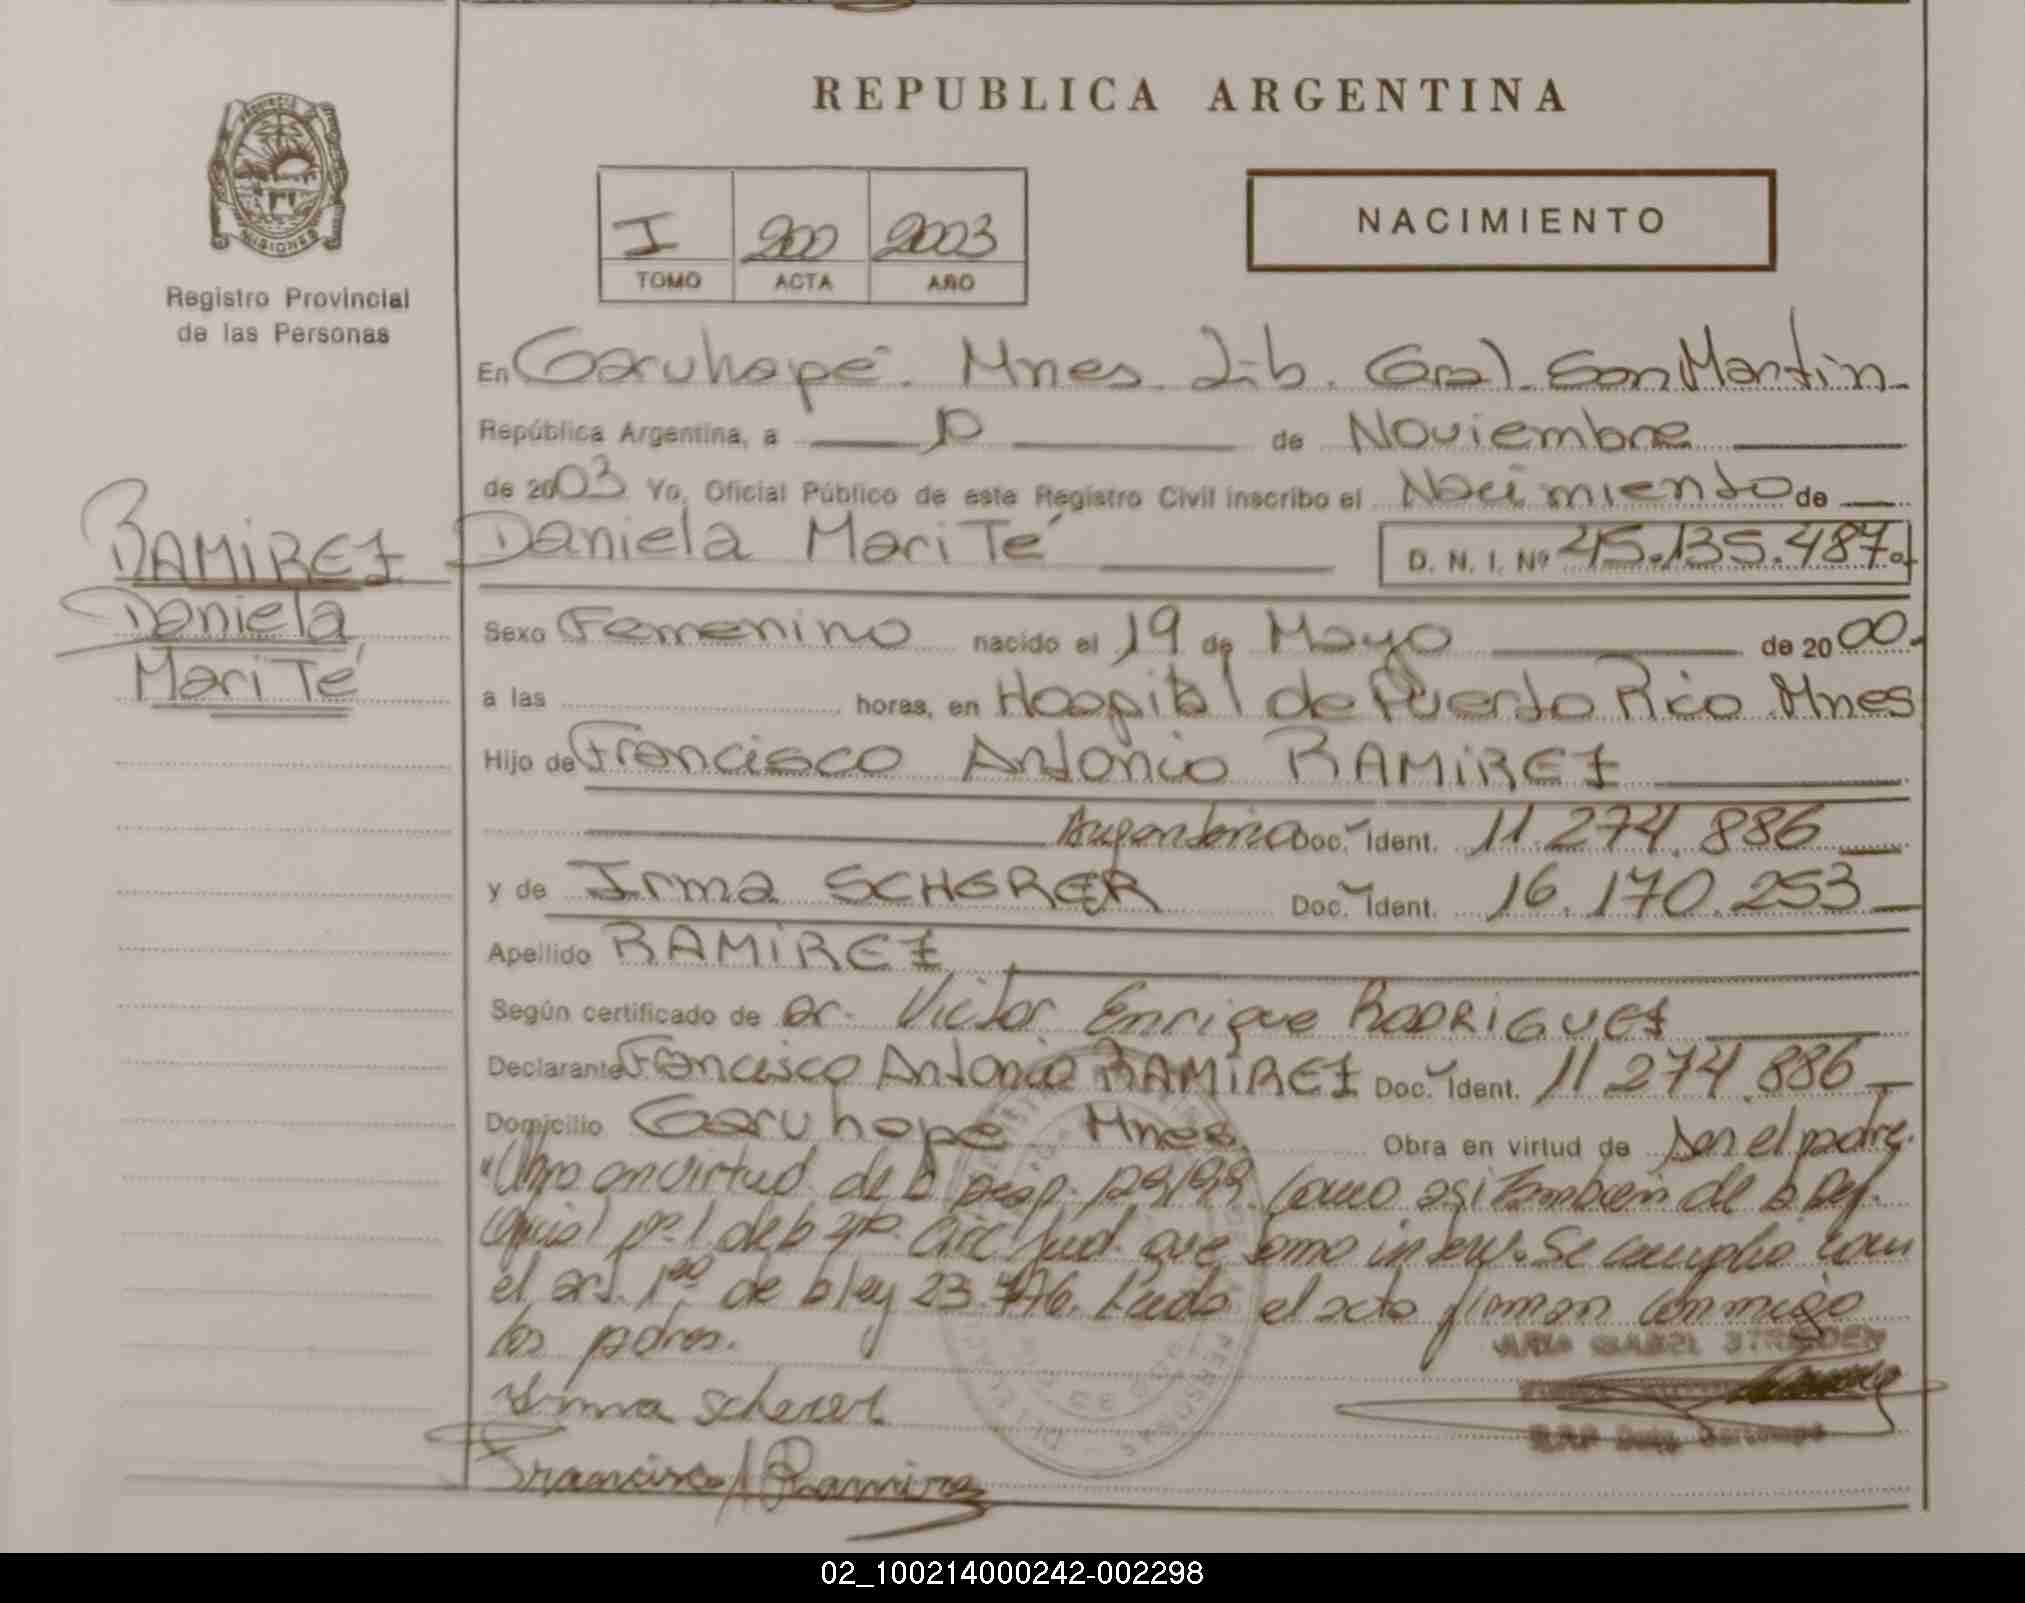 REPUBLICA ARGENTINA
PROVINCIA
MISIONES
Registro Provincial
de las Personas
I 200 2003
TOMO ACTA AÑO
NACIMIENTO
En Garuhapé. Mnes. Lib. Gral. San Martin
República Argentina, a 10 de Noviembre
de 2003 Yo, Oficial Público de este Registro Civil inscribo el Nacimiento de
Daniela MariTé D. N. I. Nº 45.135.487.
RAMIREZ
Daniela
MariTé
Sexo Femenino nacido el 19 de Mayo de 2000.
a las horas, en Hospital de Puerto Rico Mnes
Hijo de Francisco Antonio RAMIREZ
Argentino Doc. Ident. 11.274.886
y de Irma SCHERER Doc. Ident. 16.170.253
Apellido RAMIREZ
Según certificado de Dr. Victor Enrique RODRIGUEZ
Declarante Francisco Antonio RAMIREZ Doc. Ident. 11.274.886
Domicilio Garuhape Mnes. Obra en virtud de ser el padre.
en virtud de la Disp. 129/99. Como asi Tambien de la Def.
Oficial Nº 1 de la 4ta. Circ. Jud. que tomo interv. Se cumplio con
el art. 1ro de la ley 23.776. Leida el acta firman conmigo
los padres.
Irma Scherer
Francisco A Ramirez
02_100214000242-002298